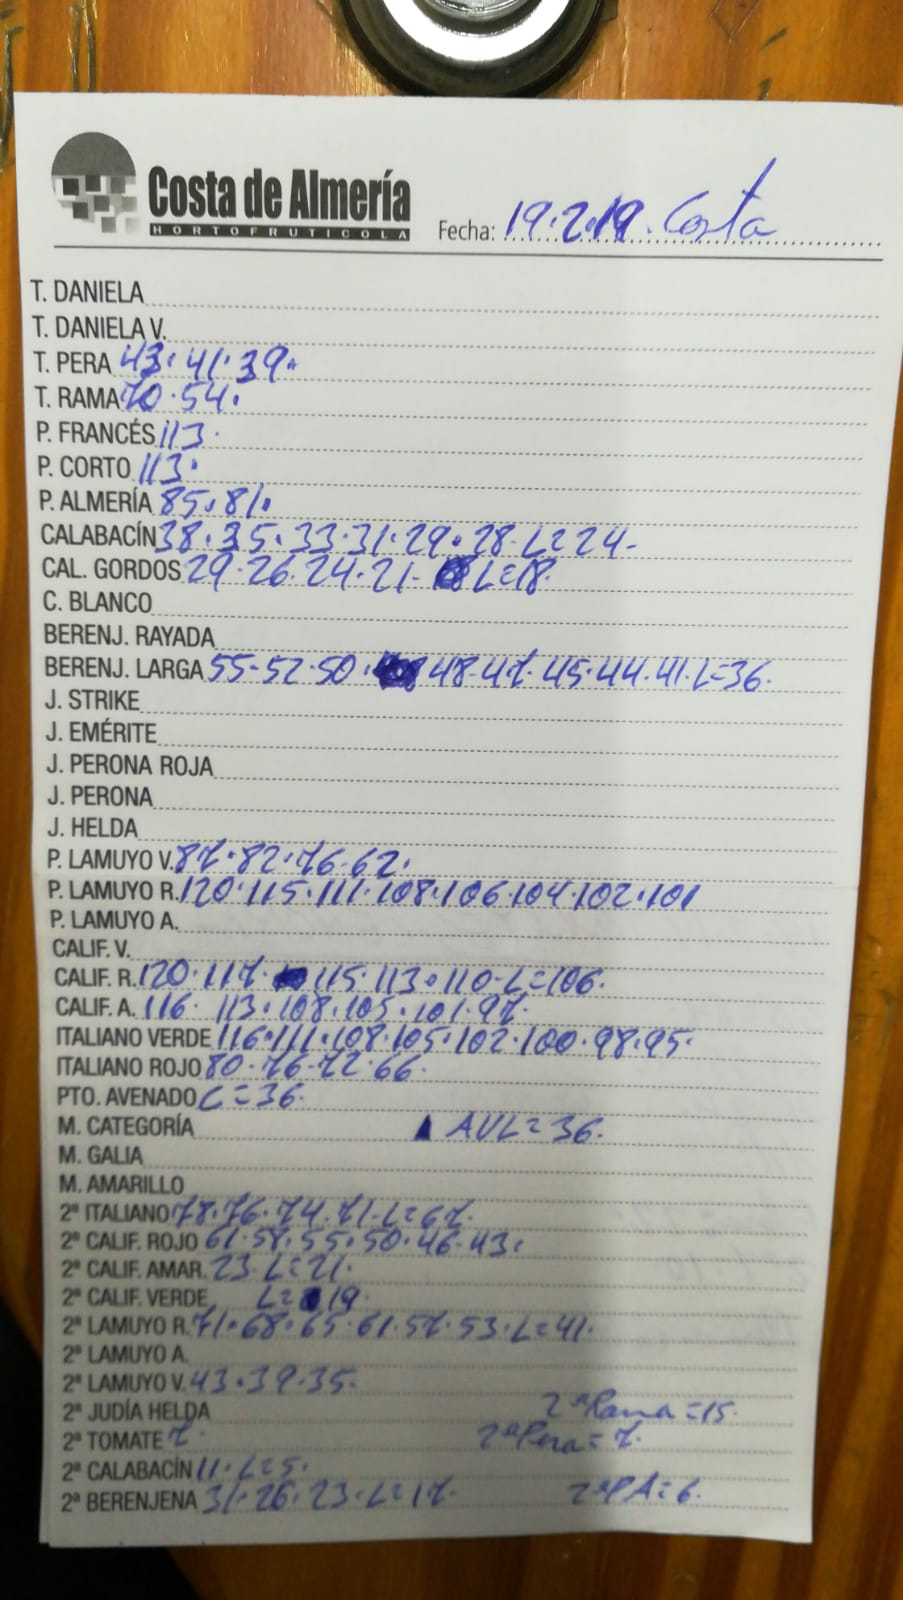 Costa de Almería
HORTOFRUTICOLA
Fecha: 19.2.19. Costa
T. DANIELA
T. DANIELA V.
T. PERA 43. 41. 39.
T. RAMA 70. 54.
P. FRANCÉS 113.
P. CORTO 113.
P. ALMERÍA 85. 81.
CALABACÍN 38. 35. 33. 31. 29. 28. L=24-
CAL. GORDOS 29. 26. 24. 21- L=18.
C. BLANCO
BERENJ. RAYADA
BERENJ. LARGA 55. 52. 50. 48. 47. 45. 44. 41. L=36.
J. STRIKE
J. EMÉRITE
J. PERONA ROJA
J. PERONA
J. HELDA
P. LAMUYO V. 87. 82. 76. 62.
P. LAMUYO R. 120. 115. 111. 108. 106. 104. 102. 101
P. LAMUYO A.
CALIF. V.
CALIF. R. 120. 117. 115. 113. 110. L=106.
CALIF. A. 116. 113. 108. 105. 101. 97.
ITALIANO VERDE 116. 111. 108. 105. 102. 100. 98. 95.
ITALIANO ROJO 80. 76. 72. 66.
PTO. AVENADO C=36.
M. CATEGORÍA AVL=36.
M. GALIA
M. AMARILLO
2ª ITALIANO 78. 76. 74. 71. L=67.
2ª CALIF. ROJO 61. 58. 55. 50. 46. 43.
2ª CALIF. AMAR. 23. L=21.
2ª CALIF. VERDE L=19.
2ª LAMUYO R. 71. 68. 65. 61. 57. 53. L=41.
2ª LAMUYO A.
2ª LAMUYO V. 43. 39. 35.
2ª JUDÍA HELDA 2ª Rama=15.
2ª TOMATE 7. 2ª Pera=7.
2ª CALABACÍN 11. L=5.
2ª BERENJENA 31. 26. 23. L=17. 2ª PA=6.